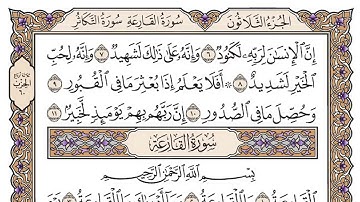 الجزء الثلاثون سورة القارعة سورة التكاثر
إِنَّ ٱلْإِنسَٰنَ لِرَبِّهِۦ لَكَنُودٌ ٦ وَإِنَّهُۥ عَلَىٰ ذَٰلِكَ لَشَهِيدٌ ٧ وَإِنَّهُۥ لِحُبِّ
ٱلْخَيْرِ لَشَدِيدٌ ٨ ۞ أَفَلَا يَعْلَمُ إِذَا بُعْثِرَ مَا فِى ٱلْقُبُورِ ٩
وَحُصِّلَ مَا فِى ٱلصُّدُورِ ١٠ إِنَّ رَبَّهُم بِهِمْ يَوْمَئِذٍ لَّخَبِيرٌۢ ١١
سُورَةُ القَارِعَةِ
بِسْمِ ٱللَّهِ ٱلرَّحْمَٰنِ ٱلرَّحِيمِ